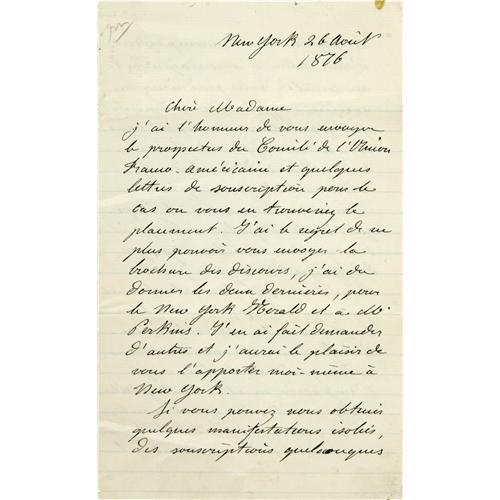 New York 26 Août
1876
Chère Madame
j'ai l'honneur de vous envoyer
le prospectus du Comité de l'Union
Franco-Américaine et quelques
lettres de souscription pour le
cas ou vous en trouveriez le
placement. J'ai le regret de ne
plus pouvoir vous envoyer la
brochure des discours, j'ai du
donner les deux dernières, pour
le New York Herald et a Mr
Perkins. J'en ai fait demander
d'autres et j'aurai le plaisir de
vous l'apporter moi-même à
New York.
Si vous pouvez nous obtenir
quelques manifestations isolées,
des souscriptions quelconques